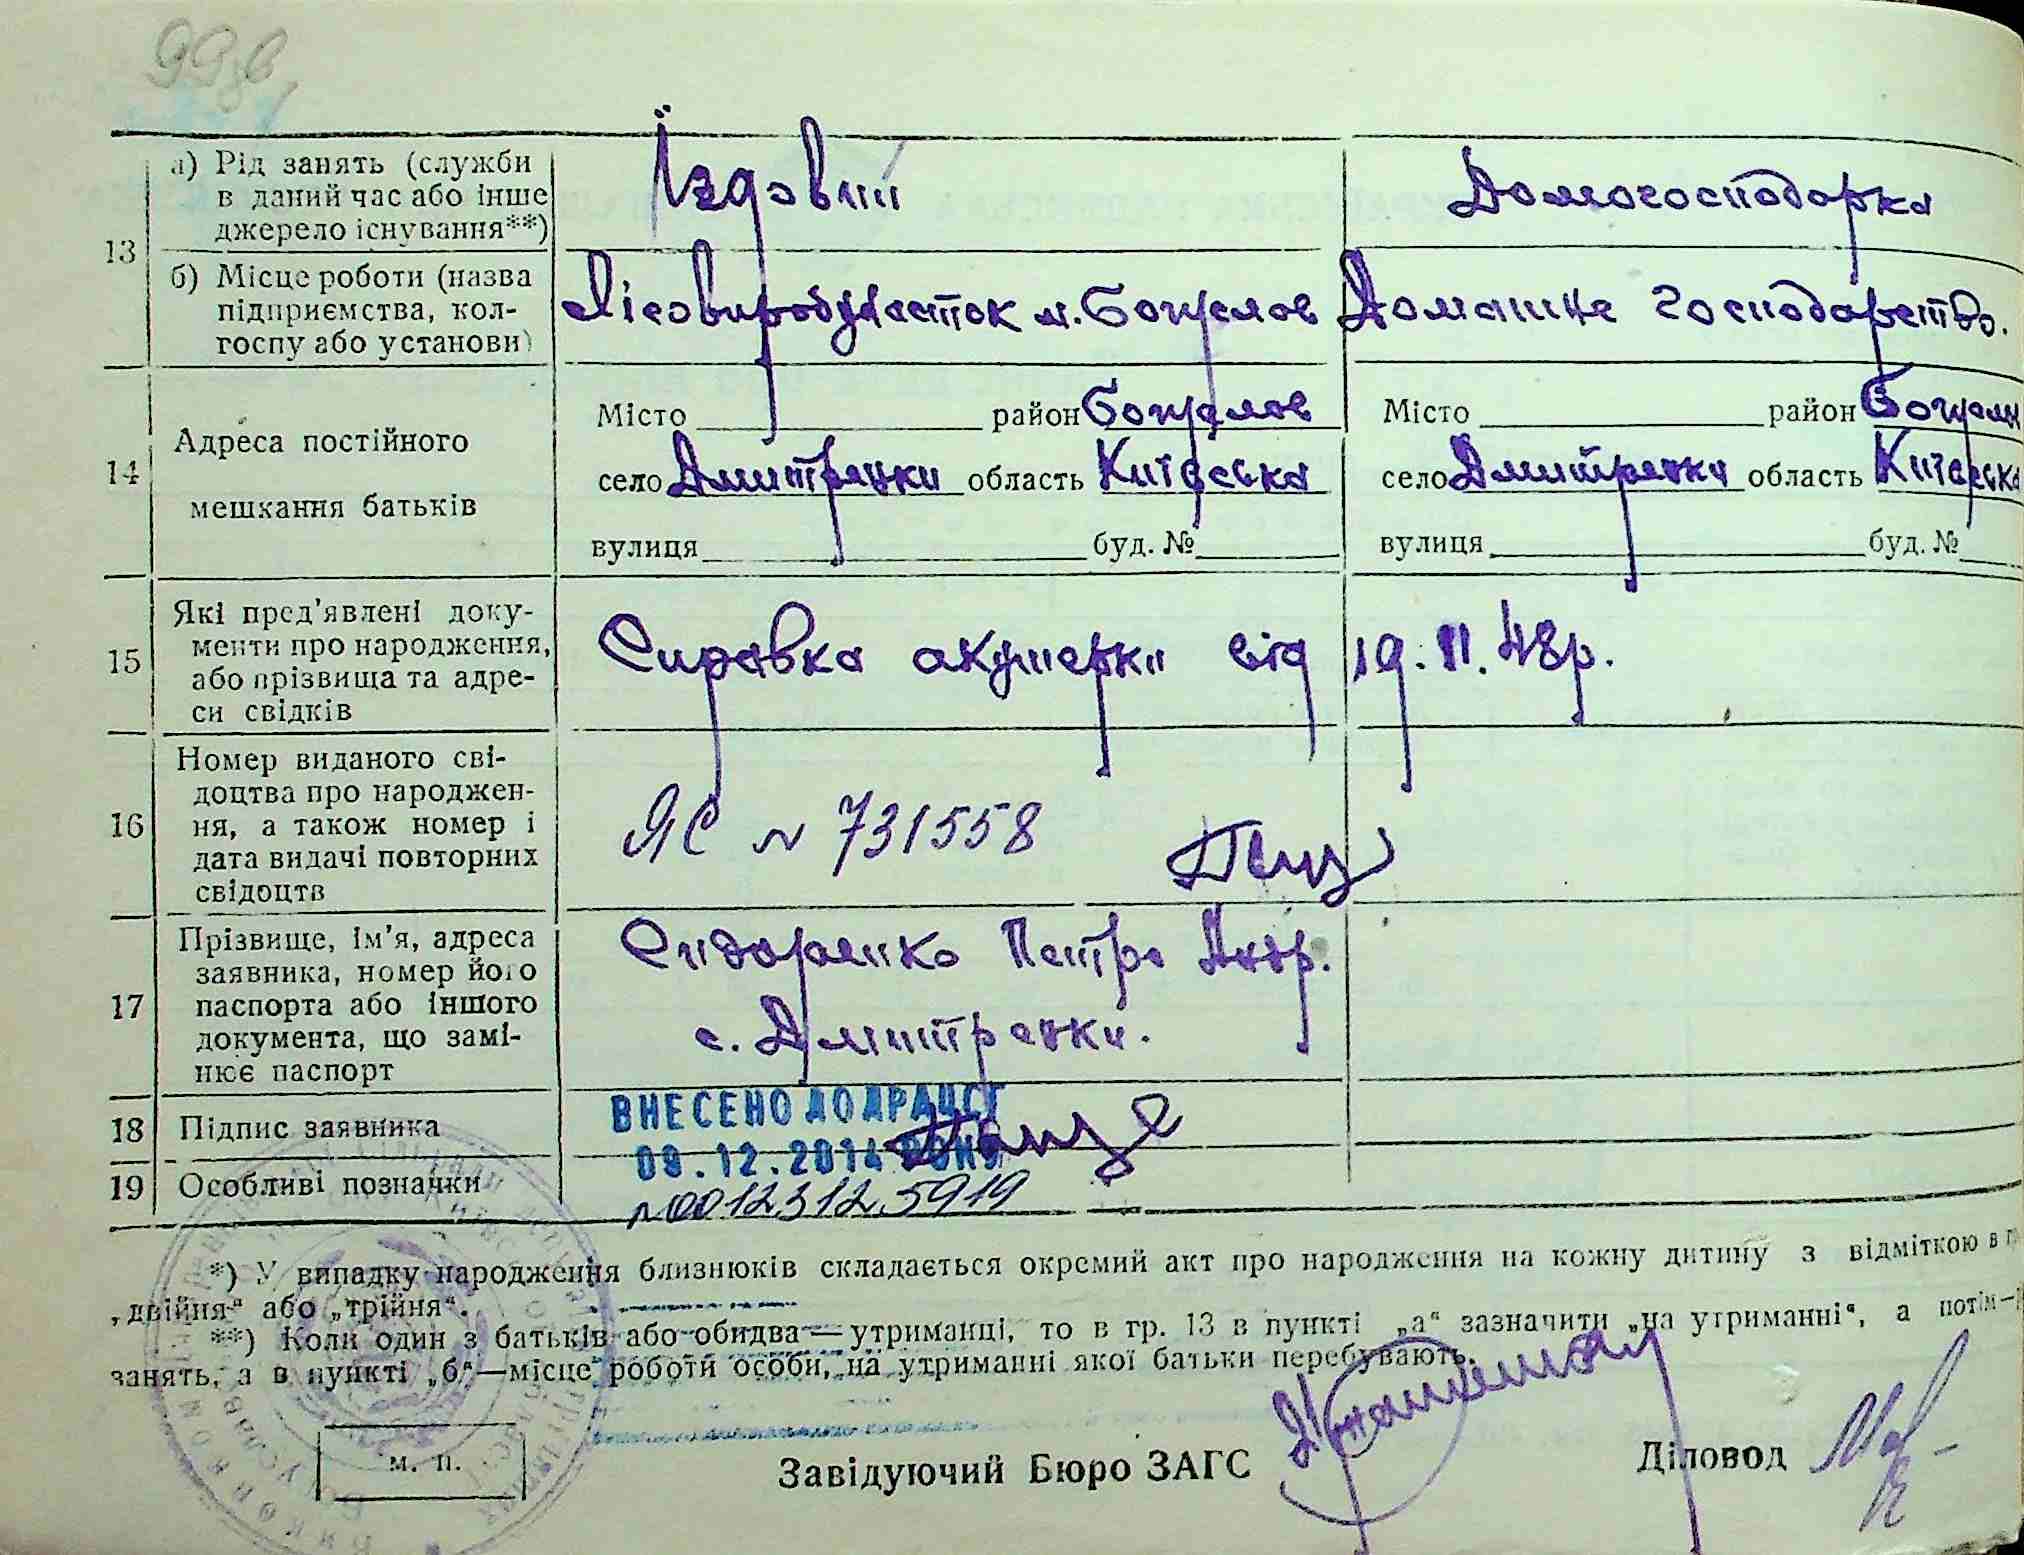 99зв
13
а) Рід занять (служби
в даний час або інше
джерело існування**)
Їздовий
Домогосподарка
б) Місце роботи (назва
підприємства, кол-
госпу або установи)
Лісовиробучасток м. Богуслав
Домашнє господарство.
14
Адреса постійного
мешкання батьків
Місто район Богуслав
село Дмитренки область Київська
вулиця буд. №
Місто район
село Дмитренки область Київська
вулиця буд. №
15
Які пред'явлені доку-
менти про народження,
або прізвища та адре-
си свідків
Справка акушерки від 19. II. 48р.
16
Номер виданого сві-
доцтва про народжен-
ня, а також номер і
дата видачі повторних
свідоцтв
ЯС № 731558
17
Прізвище, ім'я, адреса
заявника, номер його
паспорта або іншого
документа, що замі-
нює паспорт
Сидоренко Петро
с. Дмитренки.
18
Підпис заявника
ВНЕСЕНО ДО ДРАЦСГ
09.12.2014 РОКУ
19
Особливі позначки
№00123125919
*) У випадку народження близнюків складається окремий акт про народження на кожну дитину з відміткою в
„двійня“ або „трійня“.
**) Коли один з батьків або обидва—утриманці, то в гр. 13 в пункті „а“ зазначити „на утриманні“, а потім—
занять, а в пункті „б“—місце роботи особи, на утриманні якої батьки перебувають.
м. п.
Завідуючий Бюро ЗАГС
Діловод